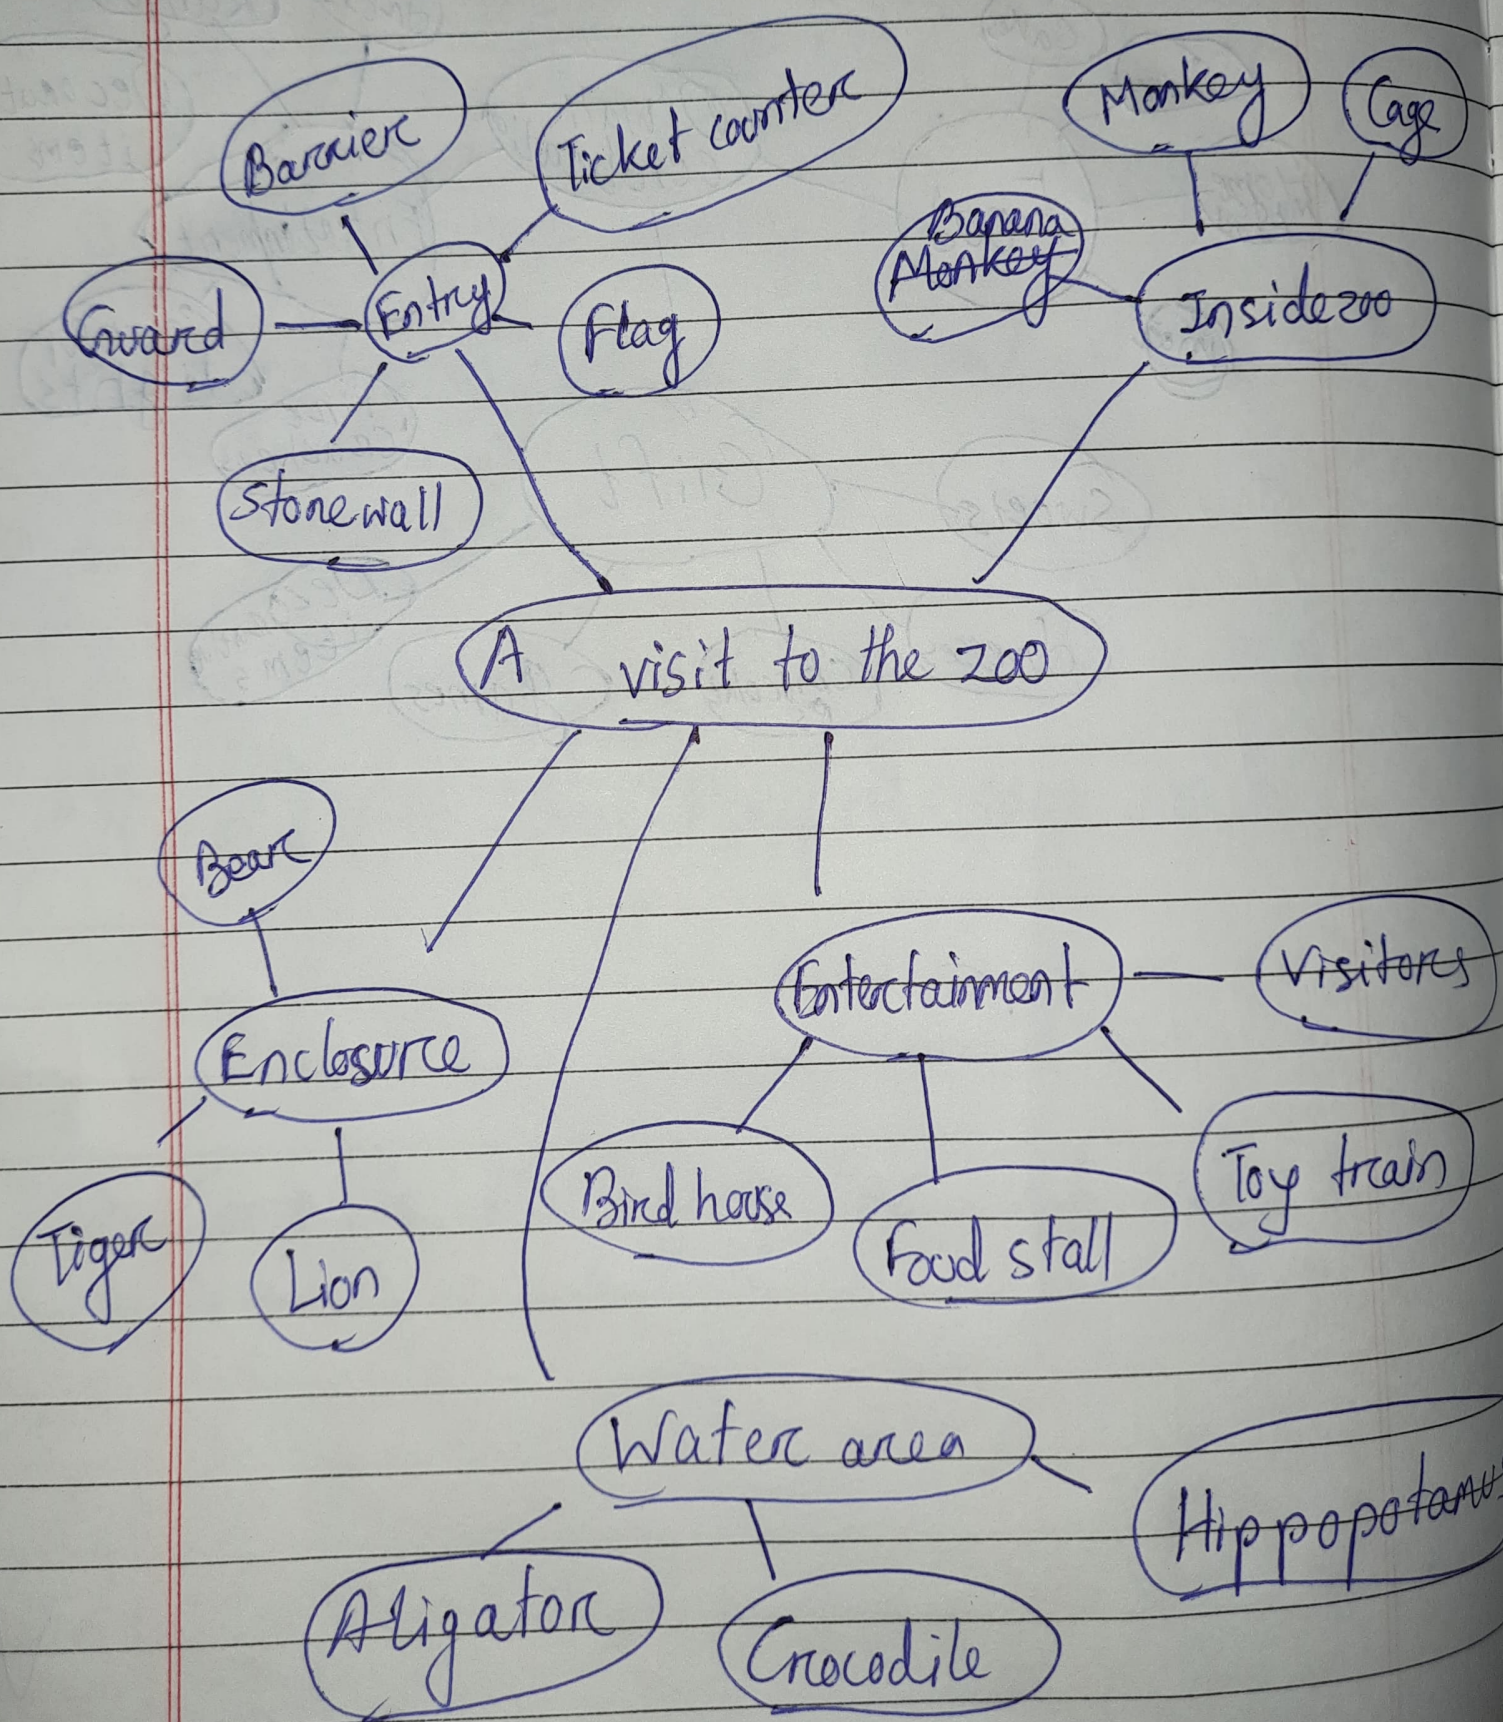 Barrier
Ticket counter
Monkey
Cage
Guard
Entry
Flag
Banana
Monkey
Inside zoo
Stonewall
A visit to the zoo
Bear
Enclosure
Entertainment
Visitors
Tiger
Lion
Bird house
Food stall
Toy train
Water area
Aligator
Crocodile
Hippopotamus